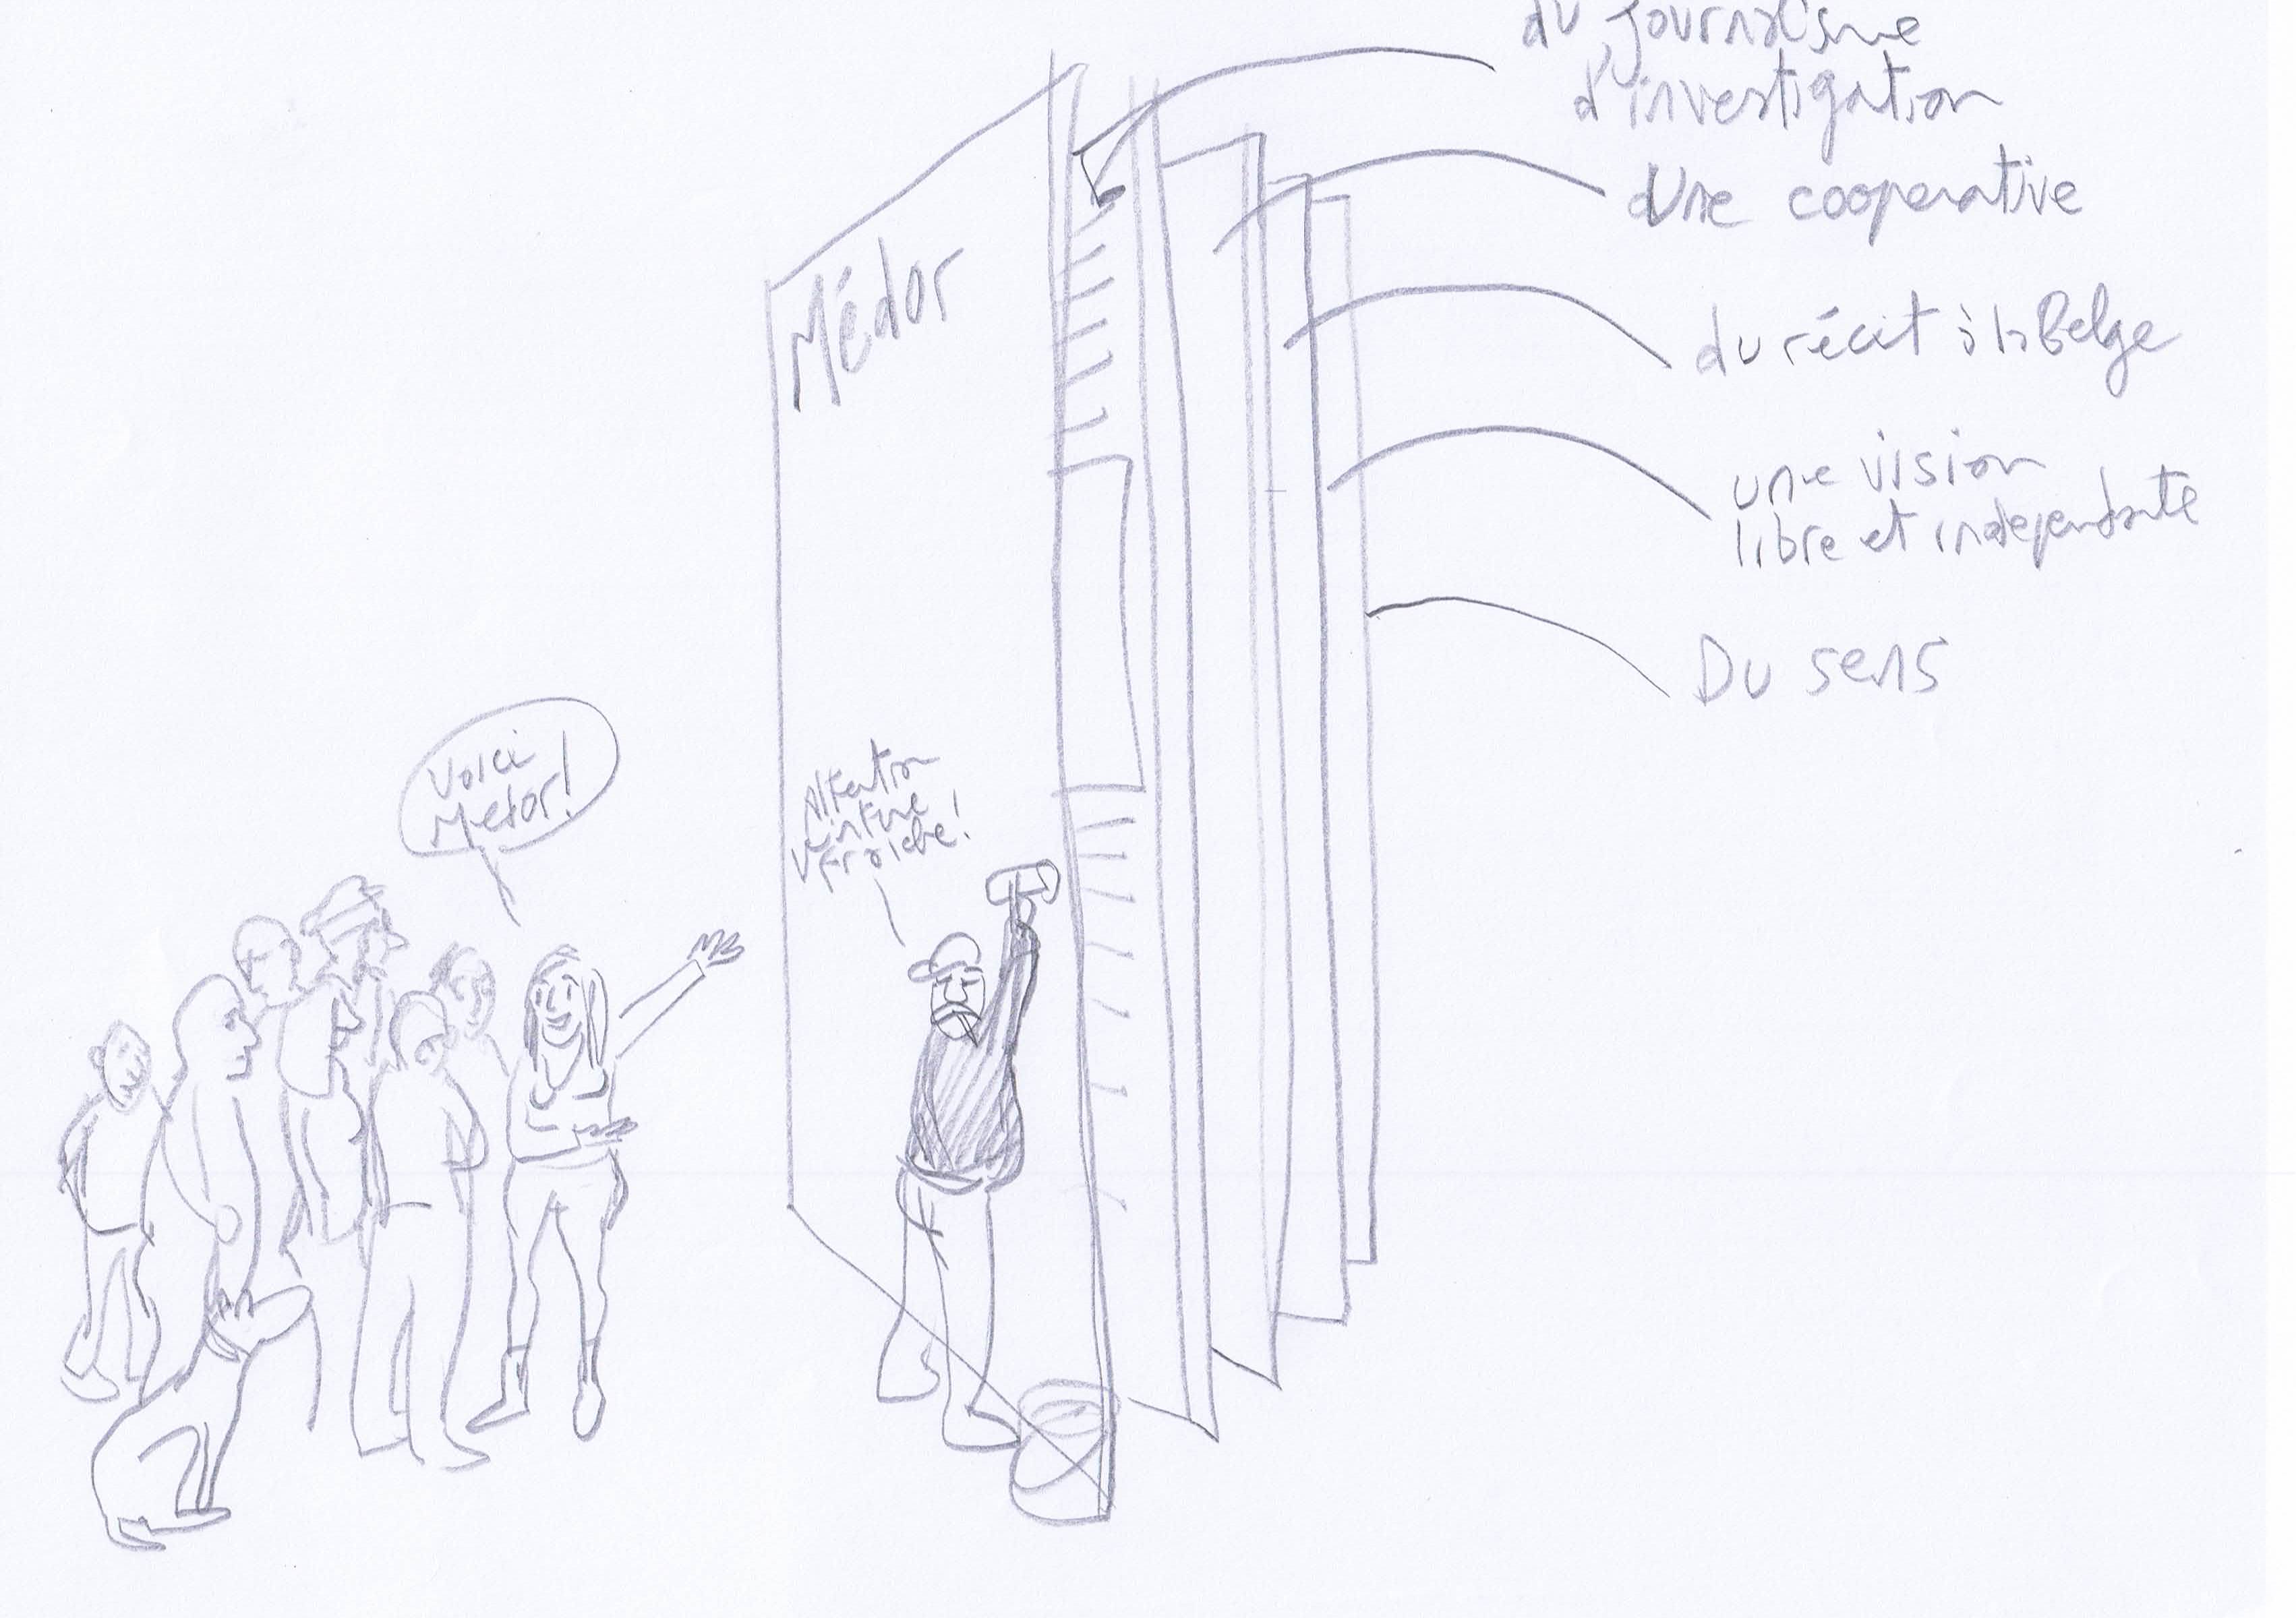 du journalisme
d'investigation
Une cooperative
du récit à la Belge
une vision
libre et independante
Du sens
Médor
Voici
Medor!
Attention
peinture
fraiche!